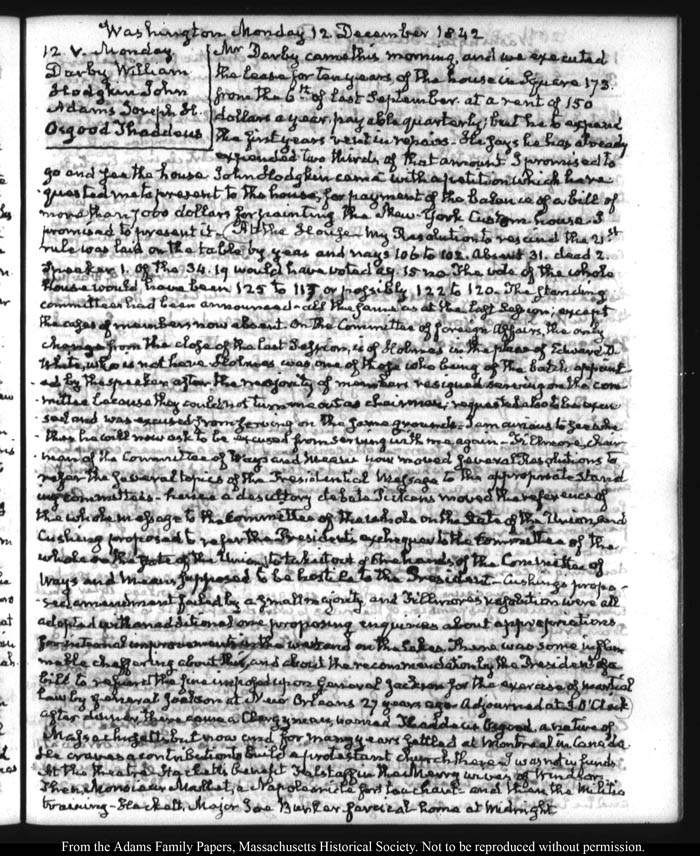 Washington Monday 12. December 1842
12. V. Monday
Darby William
Hodgkin John
Adams Joseph H.
Osgood Thaddeus
Mr Darby came this morning, and we executed
the lease for ten years of the house in Square 173.
from the 6th of last September. at a rent of 150
dollars a year, payable quarterly; but he to expend
the first years rent in repairs. He says he has already
expended two thirds of that amount I promised to
go and see the house John Hodgkin came with a petition which he re-
quested me to present to the house, for payment of the balance of a bill of
more than 7000 dollars for painting the New-York Custom house. I
promised to present it. At the House. My Resolution to rescind the 21st
rule was laid on the table by yeas and nays 106 to 102. absent 31. dead 2.
Speaker 1. Of the 34. 19 would have voted ay. 15 no. The vote of the whole
House would have been 125 to 117 or possibly 122 to 120. The standing
committees had been announced. all the same as at the last Session; except
the cases of members now absent. On the Committee of foreign Affairs, the only
change from the close of the last Session, is of Holmes in the place of Edward D.
White, who is not here Holmes was one of those who being of the batch appoint
ed by the speaker after the majority of members resigned serving on the com-
mittee because they could not turn me out as chairman, requested also to be excu
sed and was excused from serving on the same grounds. I am curious to see whe
ther he will now ask to be excused from serving with me again. Fillmore, chair-
man of the Committee of Ways and Means now moved several Resolutions to
refer the several topics of the Presidential Message to the appropriate stand
ing committees. hence a desultory debate Pickens moved the reference of
the whole message to the committee of the whole on the State of the Union, and
Cushing proposed to refer the President's exchequer to the committee of the
whole on the state of the Union, to take it out of the hands of the Committee of
Ways and Means, supposed to be hostile to the President. Cushing's propo-
sed amendment failed by a small majority, and Fillmore's resolutions were all
adopted with an additional one proposing enquiries about appropriations
for internal improvements in the west and on the lakes. There was some inflam
mable chaffering about this, and about the recommendation by the President of a
bill to refund the fine imposed upon General Jackson for the exercise of martial
law by General Jackson at New Orleans 27 years ago Adjourned at 3 O'Clock
after dinner there came a Clergyman, named Thaddeus Osgood, a native of
Massachusetts but now and for many years settled at Montreal in Canada
He craves a contribution to build a protestant church there I was not in funds.
At the Theatre Hackett's benefit Falstaff in the Merry wives of Windsor.
Then, Monsieur Mallet, a Napoleonite and then the Militia
training. Hackett, Major Joe Bunker farcical home at Midnight
From the Adams Family Papers, Massachusetts Historical Society. Not to be reproduced without permission.